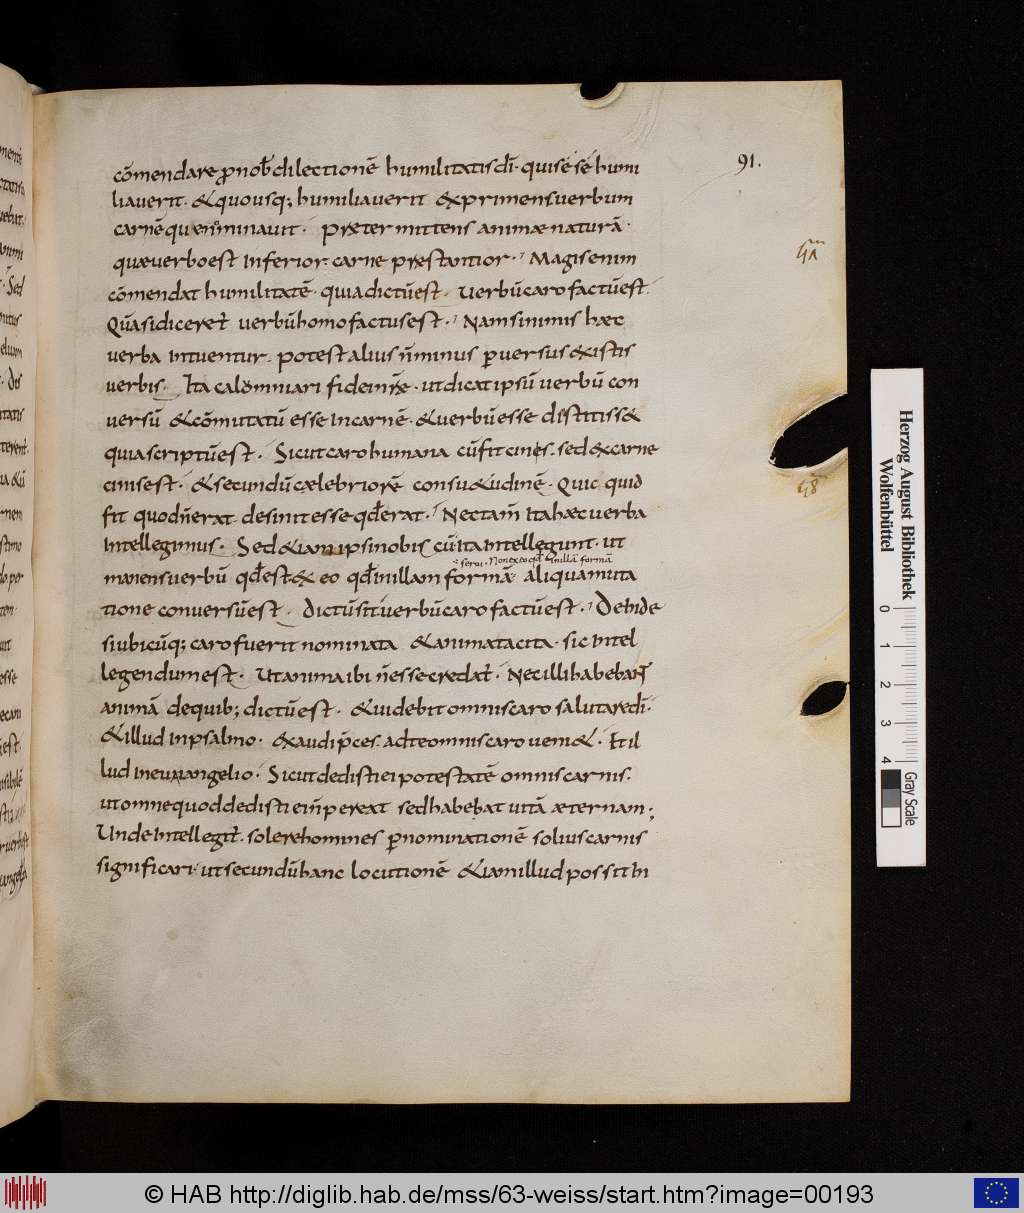 91.
cōmendare ꝓ nob̄ dilectionē humilitatis dī· qui se se humi
liauerit· & quousq; humiliauerit exprimens uerbum
carnē qu nominauit· praetermittens animae naturā·
quae uerbo est inferior· carne praestantior· Magis enim
cōmendat humilitatē· quia dictū est· uerbū caro factū est·
Quasi diceret̄ uerbū homo factus est· Nam si nimis haec
uerba intuentur· potest alius n̄ minus ꝑuersus ex istis
uerbis· Ita calomniari fidei nr̄ae· ut dicat ipsū uerbū con
uersū & cōmutatū esse in carnē· & uerbū esse destitiss&
quia scriptū est· Sicut caro humana cū fit cinis· sed ex carne
cinis est· & secundū caelebriorē consu&udinē· Quic quid
fit quod n̄ erat· desinit esse qd̄ erat· Nec tam̄ ita haec uerba
intellegimus· Sed &iam ipsi nobiscū ita intellegunt· ut
serui· Non ex eo qd̄ in illā formā
manens uerbū qd̄ est· ex eo qd̄ in illam formā· aliqua muta
tione conuersū est· dictū sit uerbū caro factū est· Deinde
si ubicūq; caro fuerit nominata & anima tacita· sic intel
legendum est· Ut anima ibi n̄ esse credat̄· Nec illi habebant
animā de quib; dictū est· & uidebit omnis caro salutare dī·
& illud in psalmo· exaudi p̄ces· ad te omnis caro ueni&· Et il
lud in euuangelio· Sicut dedisti ei potestatē omnis carnis·
ut omne quod dedisti ei n̄ pereat sed habebat uitā aeternam;
Unde intellegit̄· solere homines ꝑ nominationē solius carnis
significari· ut secundū hanc locutionē &iam illud possit in
Herzog August Bibliothek
Wolfenbüttel
0 1 2 3 4
Gray Scale
© HAB http://diglib.hab.de/mss/63-weiss/start.htm?image=00193